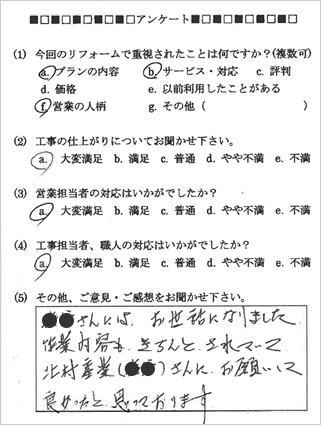 ■□■□■□■□■アンケート■□■□■□■□■
(1) 今回のリフォームで重視されたことは何ですか?(複数可)
a. プランの内容 b. サービス・対応 c. 評判
d. 価格 e. 以前利用したことがある
f. 営業の人柄 g. その他 ( )
(2) 工事の仕上がりについてお聞かせ下さい。
a. 大変満足 b. 満足 c. 普通 d. やや不満 e. 不満
(3) 営業担当者の対応はいかがでしたか?
a. 大変満足 b. 満足 c. 普通 d. やや不満 e. 不満
(4) 工事担当者、職人の対応はいかがでしたか?
a. 大変満足 b. 満足 c. 普通 d. やや不満 e. 不満
(5) その他、ご意見・ご感想をお聞かせ下さい。
●●さんには、お世話になりました。
作業内容も、きちんとされていて
北村産業(●●)さんに、お願いして
良かったと思っております